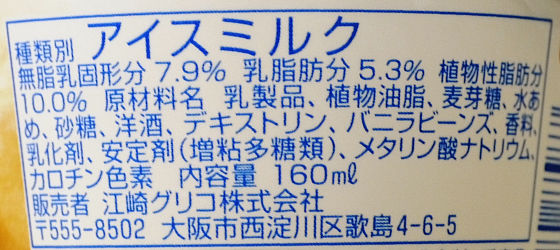 種類別 アイスミルク
無脂乳固形分 7.9% 乳脂肪分 5.3% 植物性脂肪分
10.0% 原材料名 乳製品、植物油脂、麦芽糖、水あ
め、砂糖、洋酒、デキストリン、バニラビーンズ、香料、
乳化剤、安定剤(増粘多糖類)、メタリン酸ナトリウム、
カロチン色素 内容量 160mℓ
販売者 江崎グリコ株式会社
〒555-8502 大阪市西淀川区歌島4-6-5